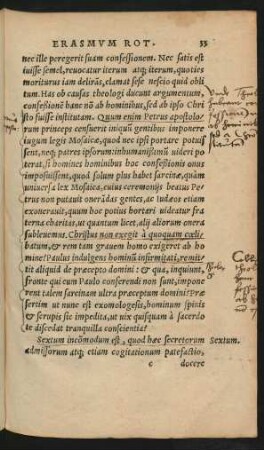 ERASMVM ROT. 33
nec ille peregerit suam confessionem. Nec satis est
iuisse semel, reuocatur iterum atq; iterum, quoties
moriturus iam delirãs, clamat sese nescio quid obli
tum. Has ob causas theologi ducunt argumentum,
confessionẽ hanc nõ ab hominibus, sed ab ipso Chri
sto fuisse institutam. Quum enim Petrus apostolo-
rum princeps censuerit iniquũ gentibus imponere
iugum legis Mosaicæ, quod nec ipsi portare potuis
sent, neq; patres ipsorum: inhumanissimũ uideri po
terat, si homines hominibus hoc confessionis onus
imposuissent, quod solum plus habet sarcinæ, quàm
uniuersa lex Mosaica, cuius ceremonijs beatus Pe-
trus non putauit onerãdas gentes, ac iudæos etiam
exonerauit, quum hoc potius hortari uideatur fra-
terna charitas, ut quantum licet, alij aliorum onera
subleuemus. Christus non exegit à quoquam cæli-
batum, & rem tam grauem homo exigeret ab ho
mine? Paulus indulgens hominũ infirmitati, remit-
tit aliquid de præcepto domini: & qua, inquiunt,
fronte qui cum Paulo conferendi non sunt, impone
rent talem sarcinam ultra præceptum domini? Præ
sertim ut nunc est exomologesis, hominum spinis
& scrupis sic impedita, ut uix quisquam à sacerdo
te discedat tranquilla conscientia?
Sextum incõmodum est, quod hæc secretorum Sextum.
admissorum atq; etiam cogitationum patefactio,
e docere